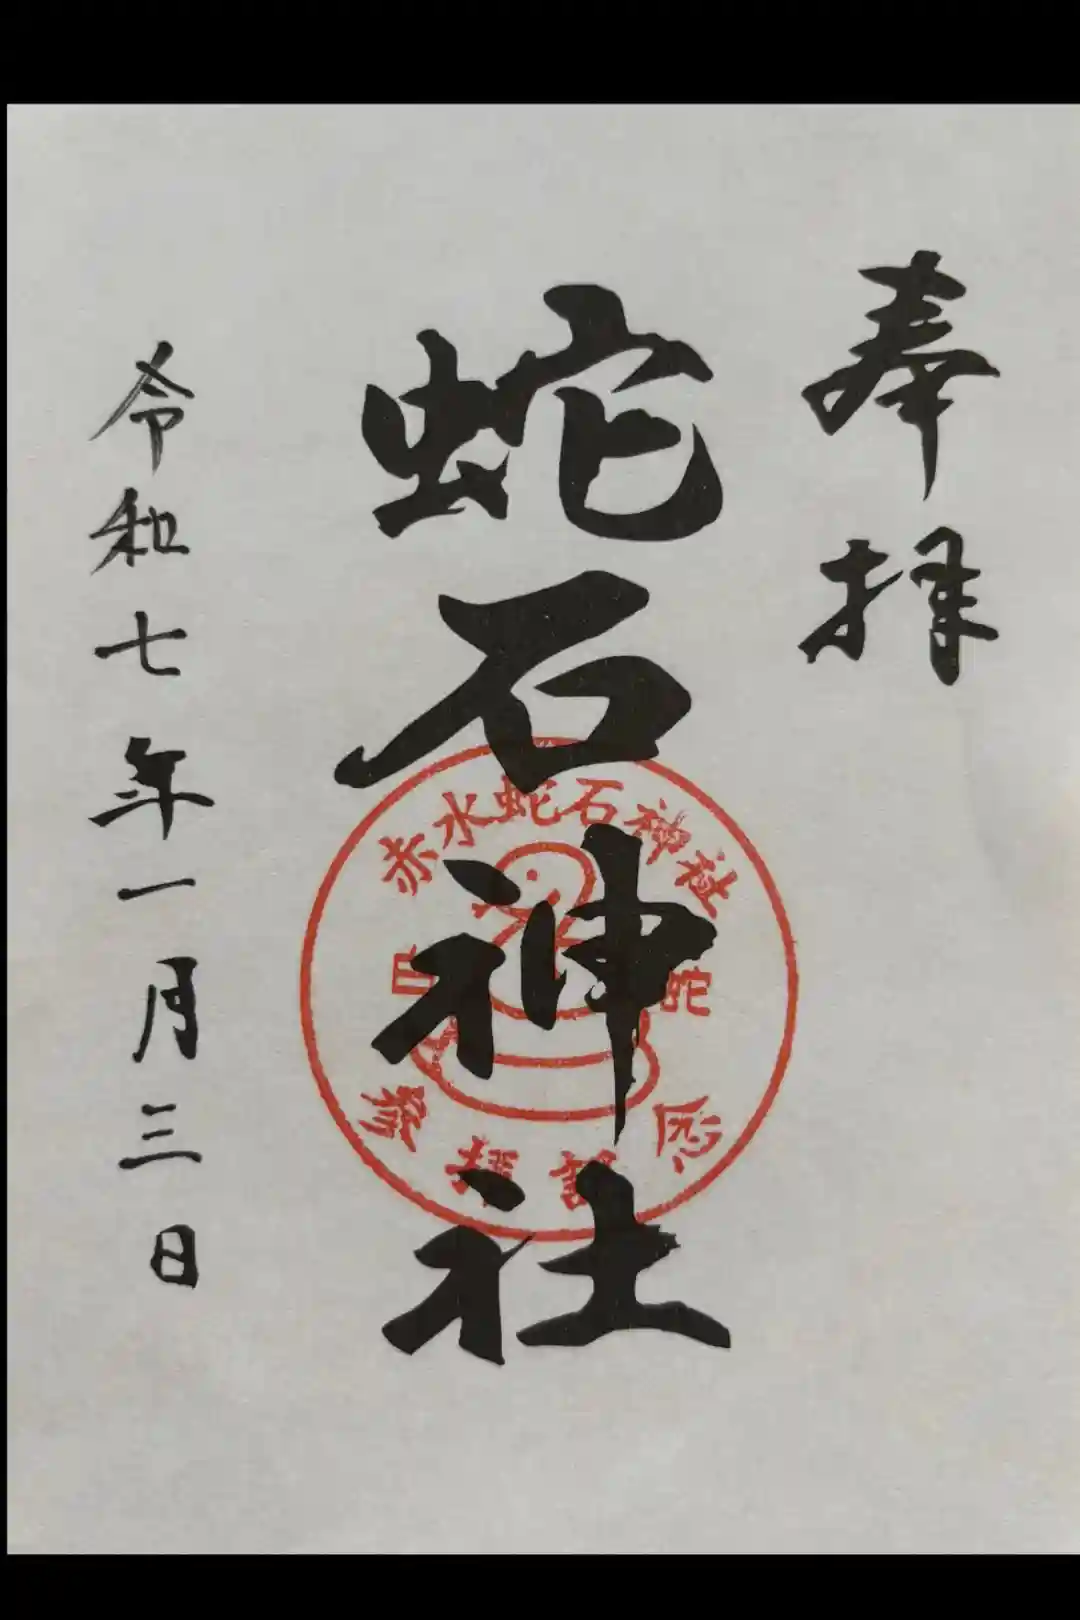 奉拝
蛇石神社
赤水蛇石神社
白蛇
参拝記念
令和七年一月三日